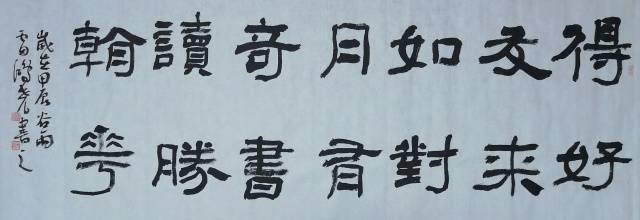 得好
友來
如對
月有
奇書
讀勝
看花
歲在甲辰谷雨
書之